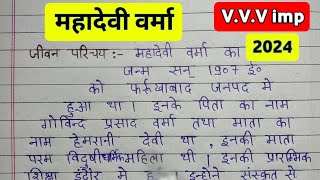 महादेवी वर्मा
V.V.V imp
2024
जीवन परिचय :- महादेवी वर्मा का
जन्म सन् 1907 ई०
को फर्रुखाबाद जनपद मे
हुआ था। इनके पिता का नाम
गोविन्द प्रसाद वर्मा तथा माता का
नाम हेमरानी देवी था, इनकी माता
परम विदुषी महिला थी। इनकी प्रारम्भिक
शिक्षा इंदौर मे इन्होने संस्कृत से